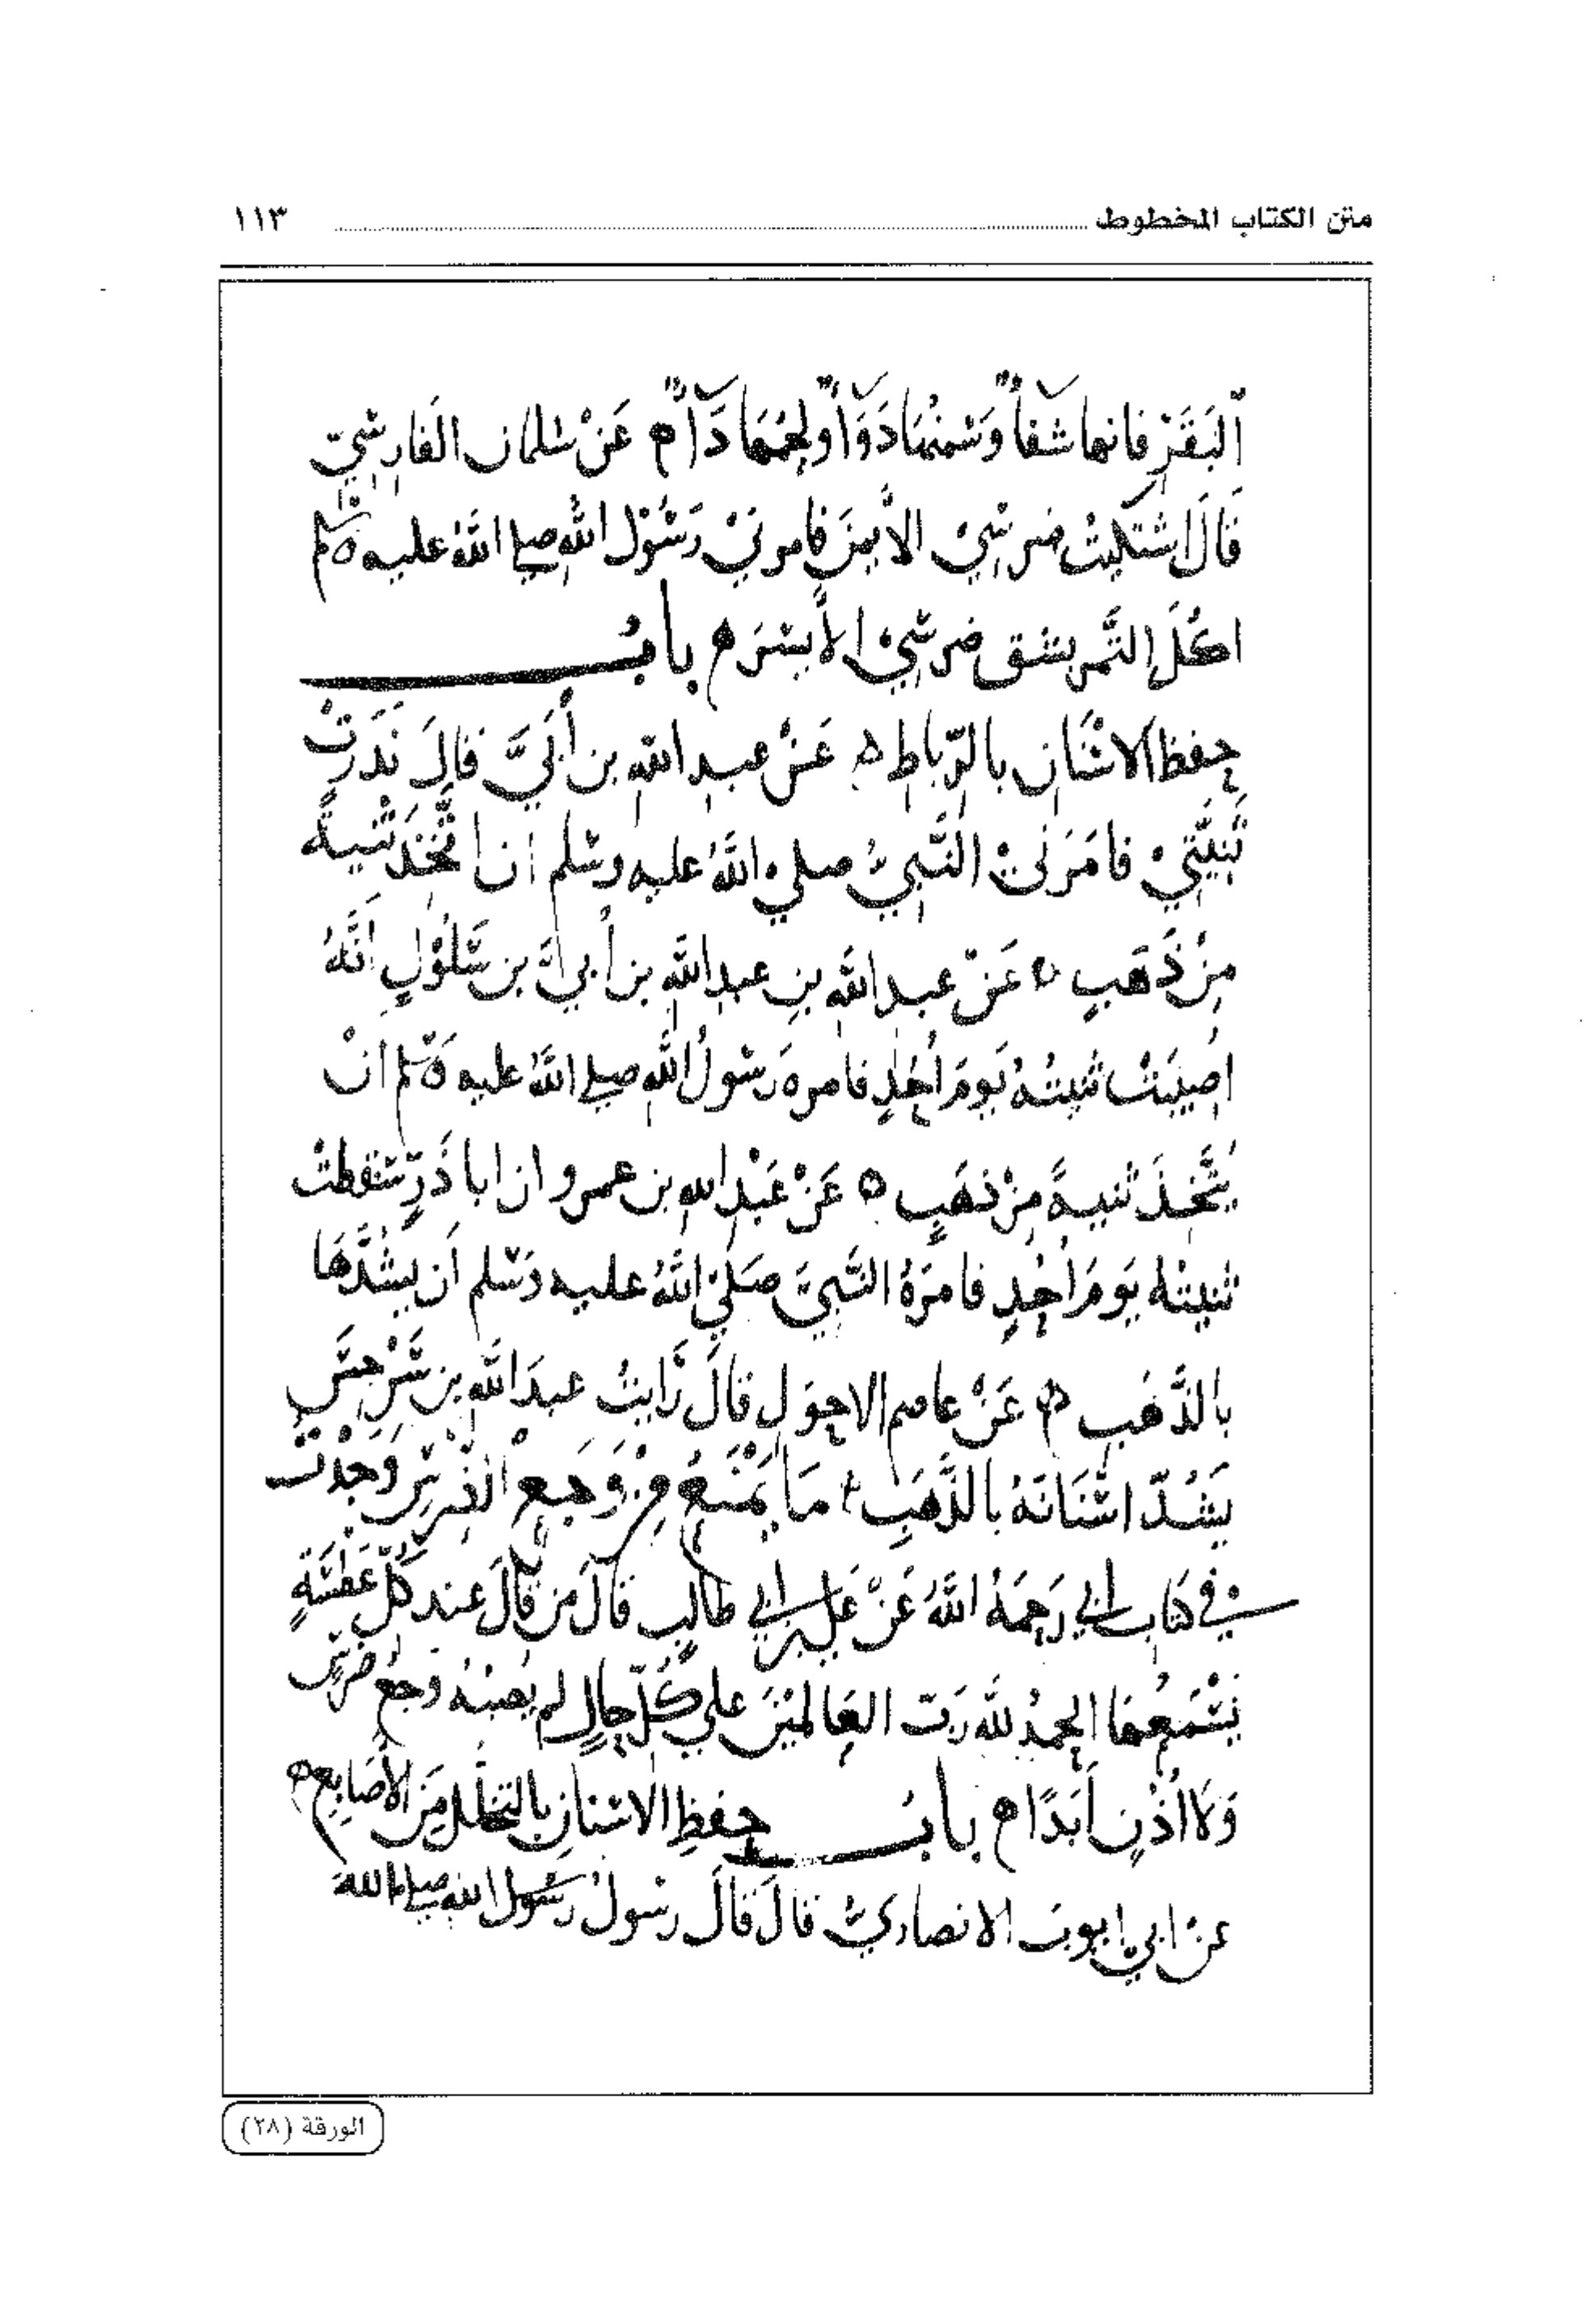 متن الكتاب المخطوط ١١٣
البَقَرْ فانها شفاً وَسَمنُهَا دَوَآ ولحمُهَا دَآ ه عَنْ سلمان الفارسيّ
قَالَ اشتكيتُ ضرسِيْ الأيمنَ فامرنيْ رَسُوْل اللهِ صلى اللهُ عليه وسلم
اكُلَ التَّمر بشق ضرسِيْ الأيسَرِ ه بابُ
حِفظ الاسْنَانِ بالرّباطِ ه عَنْ عبد اللهِ بن أُبَيَّ قالَ نَدَرتْ
ثَنِيَّتِيْ فامَرَنيْ النَّبِيُ صلي اللهُ عليه وسلم ان اتَّخِذ ثنيةً
مِنْ ذَهَبٍ ه عَنْ عبد اللهِ بنِ عبدِ اللهِ بن أُبيَّ بن سَلُوْلٍ اَنَّهُ
اُصِيْبَتْ ثنيتهُ يَومَ اُحُدٍ فامره رَسُولُ اللهِ صلى اللهُ عليه وَسلم انْ
يَتَّخِذَ ثنيةً مِنْ ذهَبٍ ه عَنْ عَبْدِ اللهِ بن عمرو ان ابا ذَرٍّ سَقطتْ
ثنيتهُ يَومَ اُحُدٍ فامرَهُ النَّبِيَّ صَلَّيْ اللهُ عليه وَسلم اَن يشُدَّهَا
بالذَّهَبِ ه عَنْ عاصم الاحوَلِ قالَ رَايتُ عبدَ اللهِ بن سَرْجِسَ
يَشُدّ اسْنَانَهُ بالذَّهَبِ مَا يَمْنَعُ مِنْ وَجَعِ الضِرْسِ وَجدْتُ
في كتاب ابي رَحِمَهُ اللهُ عَنْ عَلي بن ابي طالبٍ قالَ من قالَ عند كُلّ عَطْسَةٍ
يَسْمَعُهَا الحمدُ للهِ رَبّ العَالمينَ علي كُلّ حالٍ لم يصبْهُ وَجعُ ضرْسٍ
وَلا اُذُنٍ أَبَدًا ه بابُ حِفظِ الاسنانِ بالتخلّلِ مَن الأصَابِع ه
عن ابيْ ايوبَ الانصاريْ قالَ قالَ رسُولُ رسُول اللهِ صلى الله
الورقة (٢٨)